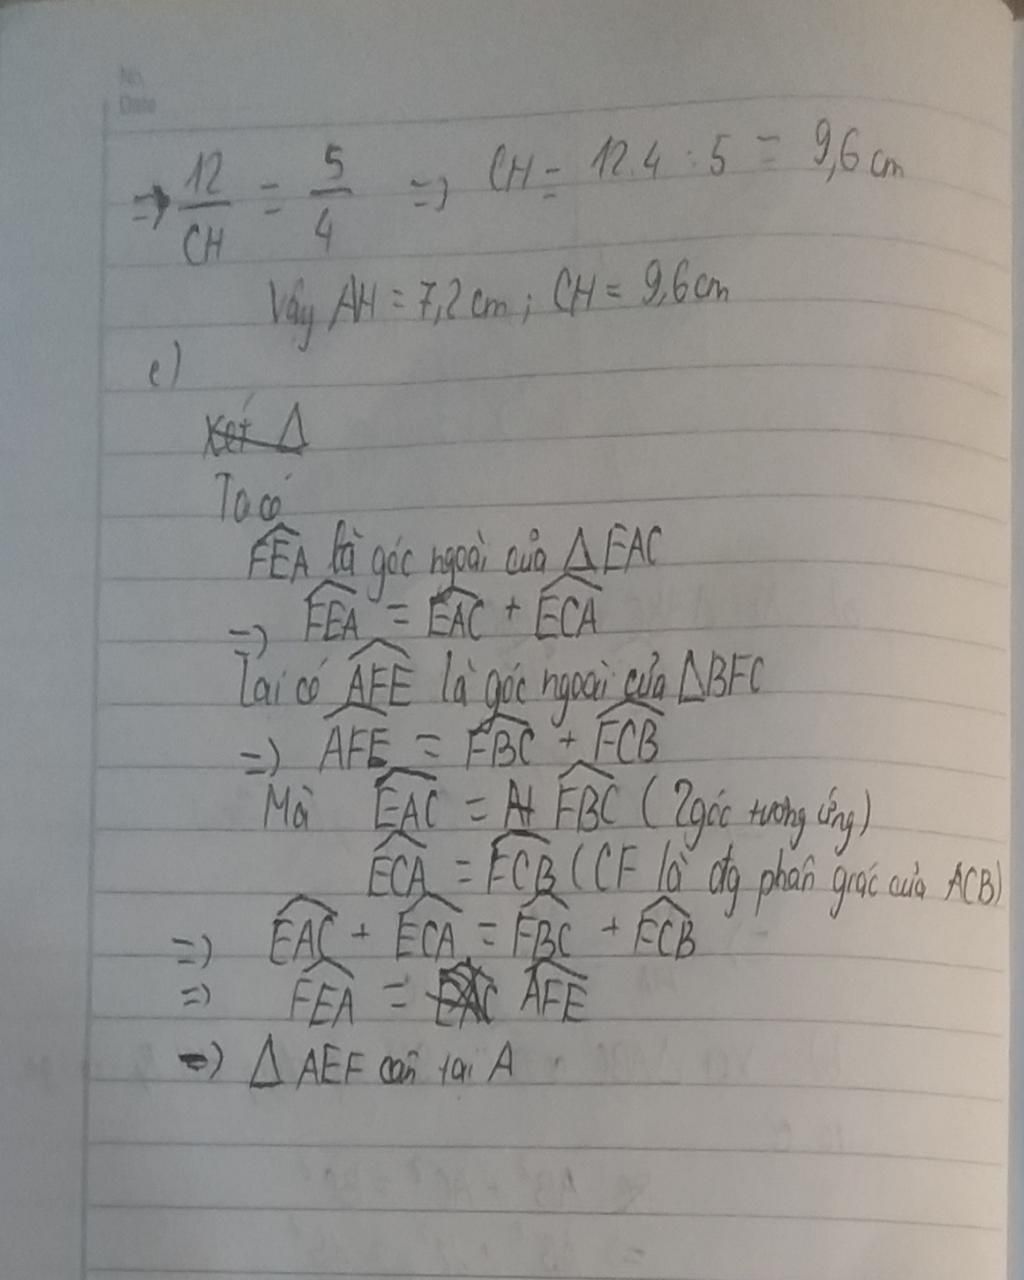 No.
Date
=> 12/CH = 5/4 => CH = 12.4 : 5 = 9,6 cm
Vậy AH = 7,2 cm ; CH = 9,6 cm
c)
Xét Δ
Ta có
FEA là góc ngoài của ΔEAC
=> FEA = EAC + ECA
Lại có AFE là góc ngoài của ΔBFC
=> AFE = FBC + FCB
Mà EAC = FBC (2 góc tương ứng)
ECA = FCB (CF là đg phân giác của ACB)
=> EAC + ECA = FBC + FCB
=> FEA = EAC AFE
=> Δ AEF cân tại A